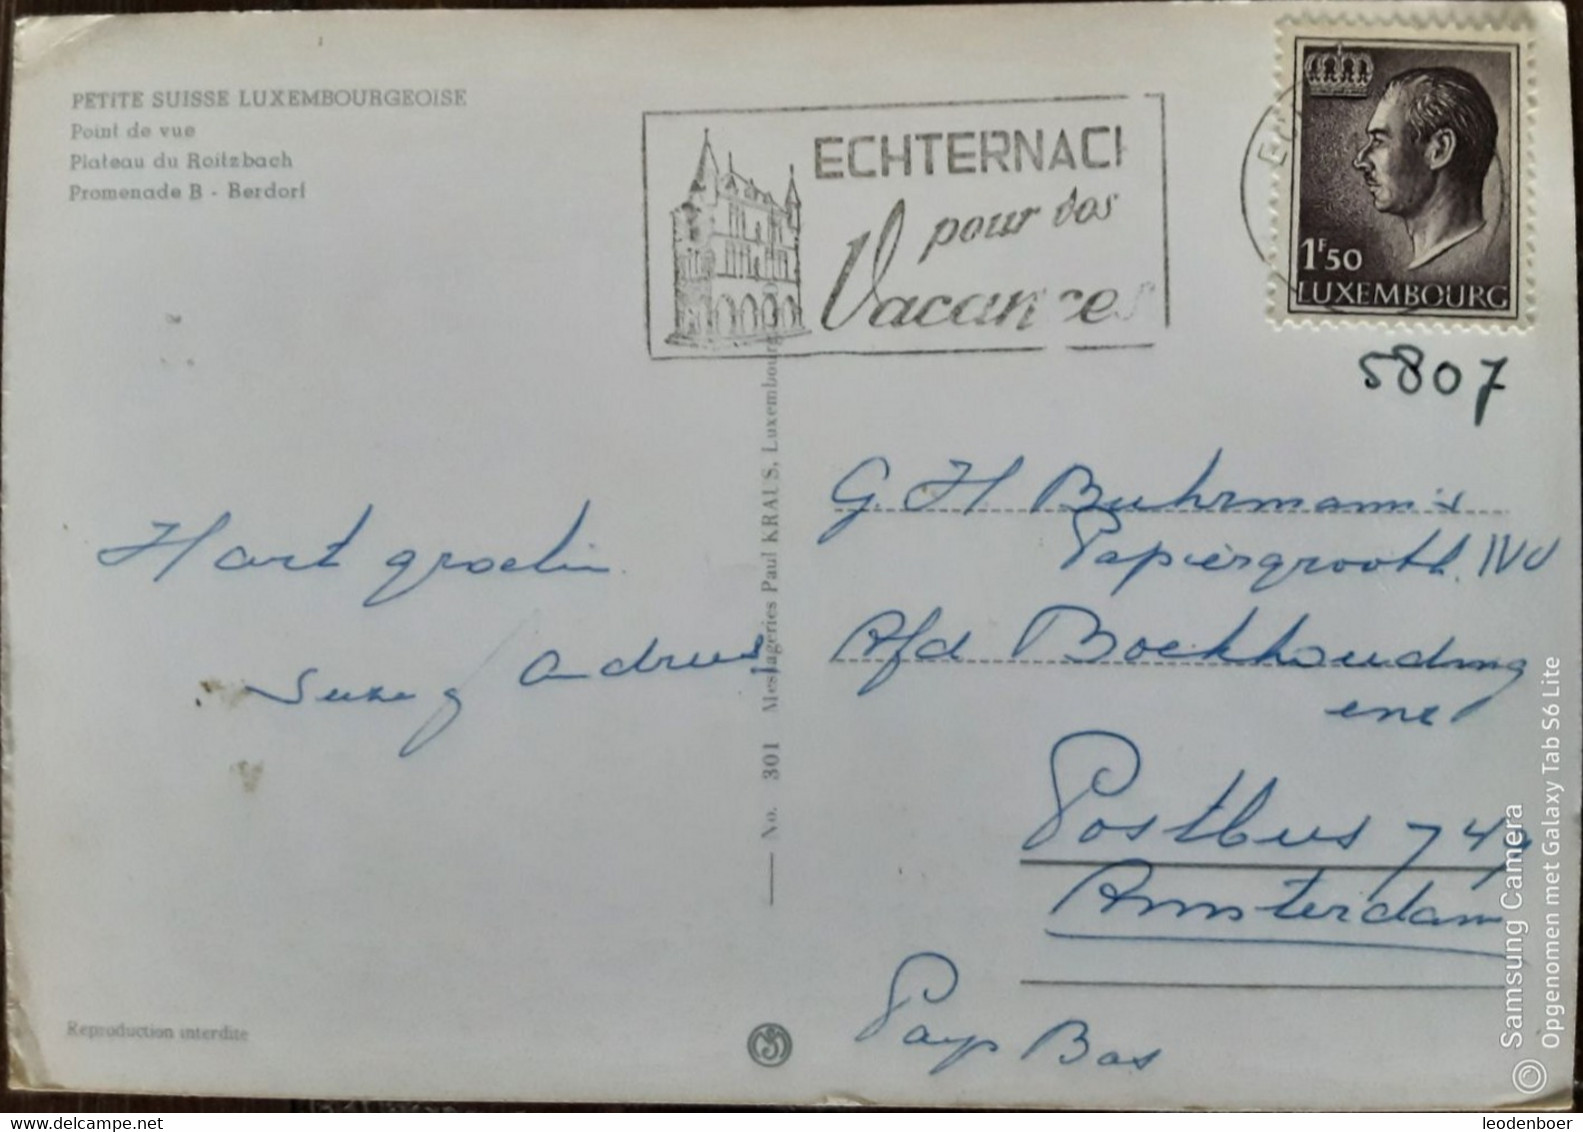 PETITE SUISSE LUXEMBOURGEOISE
Point de vue
Plateau du Roitzbach
Promenade B - Berdorf
ECHTERNACH
pour vos
Vacances
1F50
LUXEMBOURG
5807
Hart groeten
Andrew
G. H. Buhrmann's
Papiergrooth. NV
Afd Boekhouding
ene
Postbus 747
Amsterdam
Pays Bas
No. 301 Messageries Paul KRAUS, Luxembourg
Reproduction interdite
Samsung Camera
Opgenomen met Galaxy Tab S6 Lite
www.delcampe.net
leodenboer